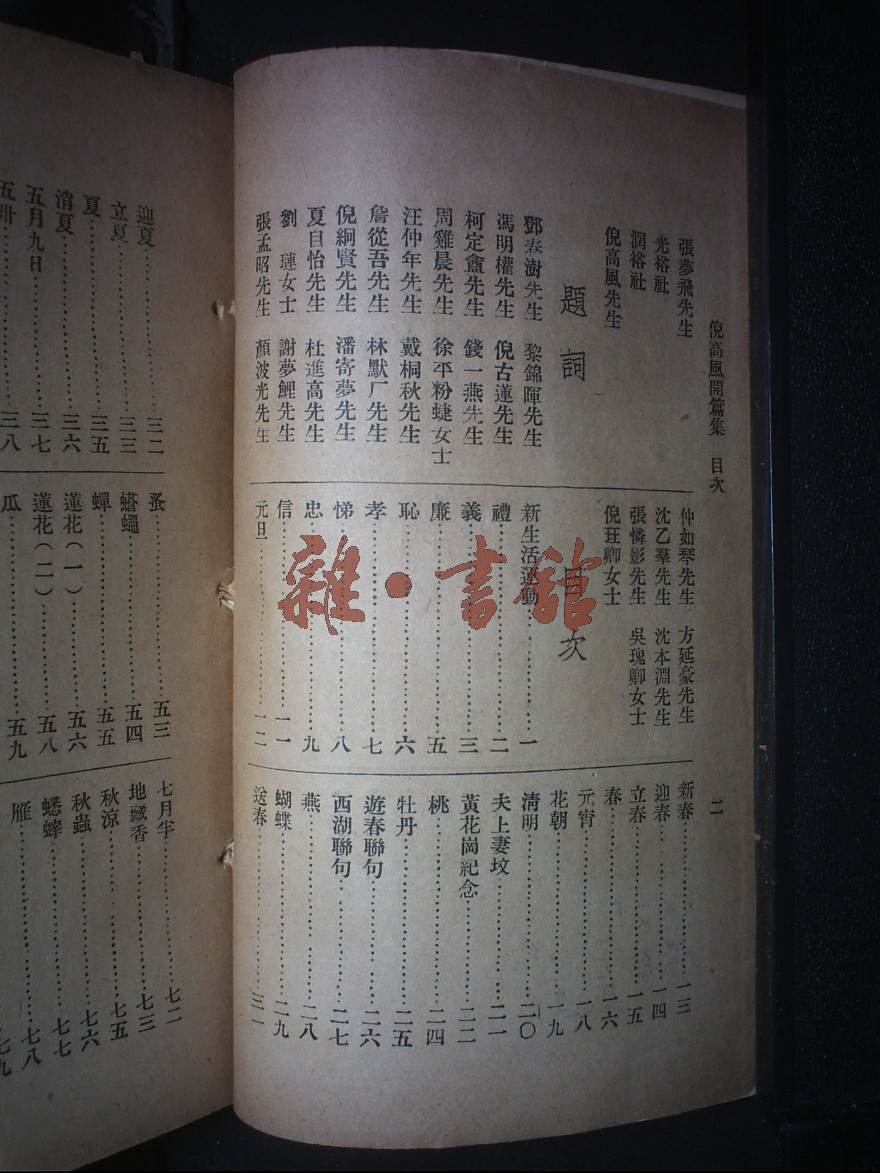 倪高風開篇集　目次　二
張夢飛先生
光裕社
潤裕社
倪高風先生
題詞
鄧春澍先生　黎錦暉先生
馮明權先生　倪古蓮先生
柯定盦先生　錢一燕先生
周雞晨先生　徐平粉蜨女士
汪仲年先生　戴桐秋先生
詹從吾先生　林默厂先生
倪絅賢先生　潘寄夢先生
夏自怡先生　杜進高先生
劉　璉女士　謝夢鯉先生
張孟昭先生　顏波光先生
仲如琴先生　方延豪先生
沈乙羣先生　沈本淵先生
張憐影先生　吳瑰卿女士
倪玨卿女士
目次
新生活運動……一
禮……二
義……三
廉……五
恥……六
孝……七
悌……八
忠……九
信……一一
元旦……一二
新春……一三
迎春……一四
立春……一五
春……一六
元宵……一八
花朝……一九
清明……二〇
夫上妻坟……二一
黃花崗紀念……二二
桃……二四
牡丹……二五
遊春聯句……二六
西湖聯句……二七
燕……二八
蝴蝶……二九
送春……三一
迎夏……三二
立夏……三三
夏……三五
消夏……三六
五月九日……三七
五卅……三八
蚤……五三
蟮蠅……五四
蟬……五五
蓮花（一）……五六
蓮花（二）……五八
瓜……五九
七月半……七二
地藏香……七三
秋涼……七五
秋蟲……七六
蟋蟀……七七
雁……七八
七九
雜·書館